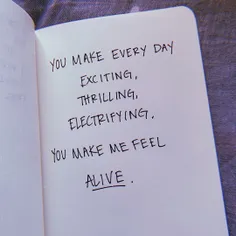 YOU MAKE EVERY DAY
EXCITING,
THRILLING,
ELECTRIFYING.
YOU MAKE ME FEEL
ALIVE.